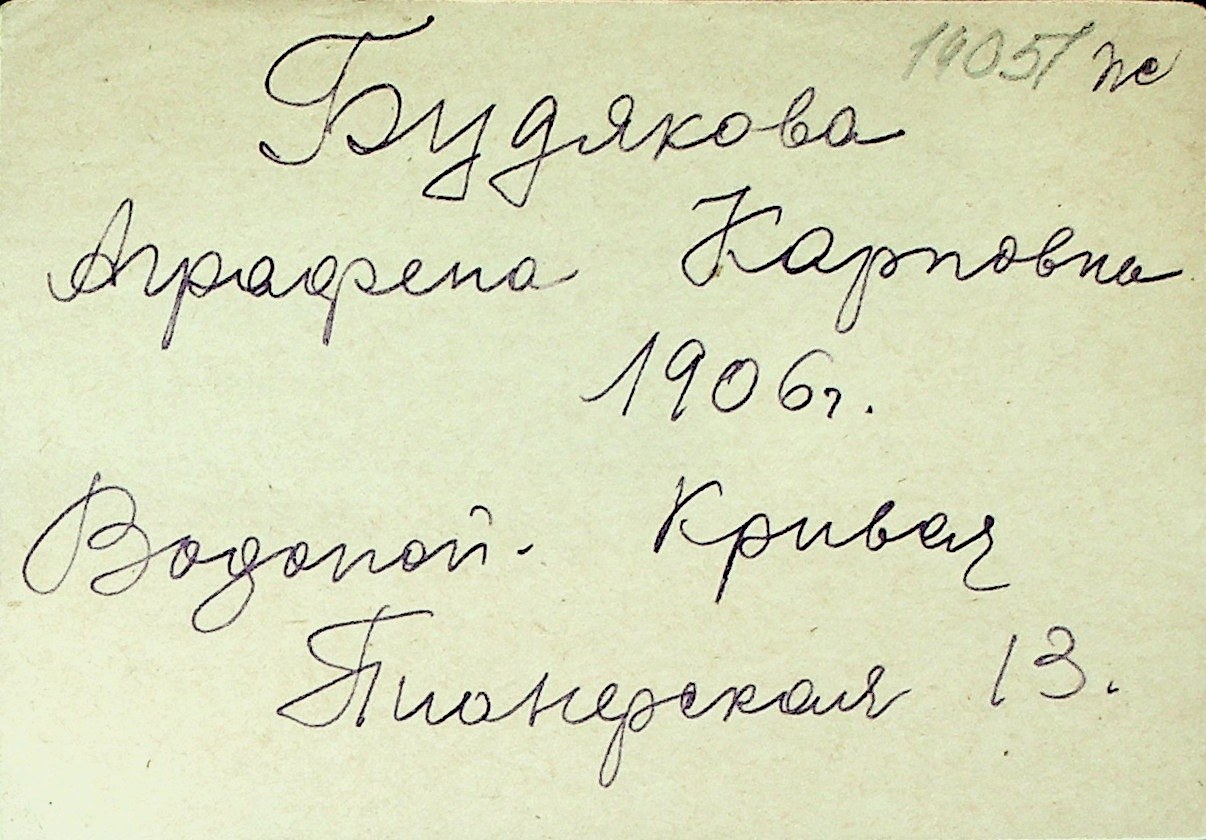 1905
Будякова
Аграфена Карповна
1906г.
Водопой. Кривая
Пионерская 13.